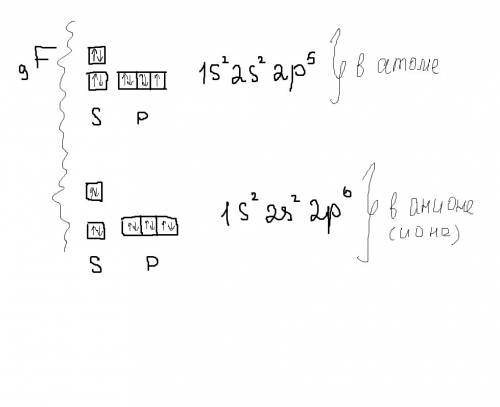 ₉F 1s² 2s² 2p⁵ в атоме
S P
1s² 2s² 2p⁶ в анионе
(ионе)
S P